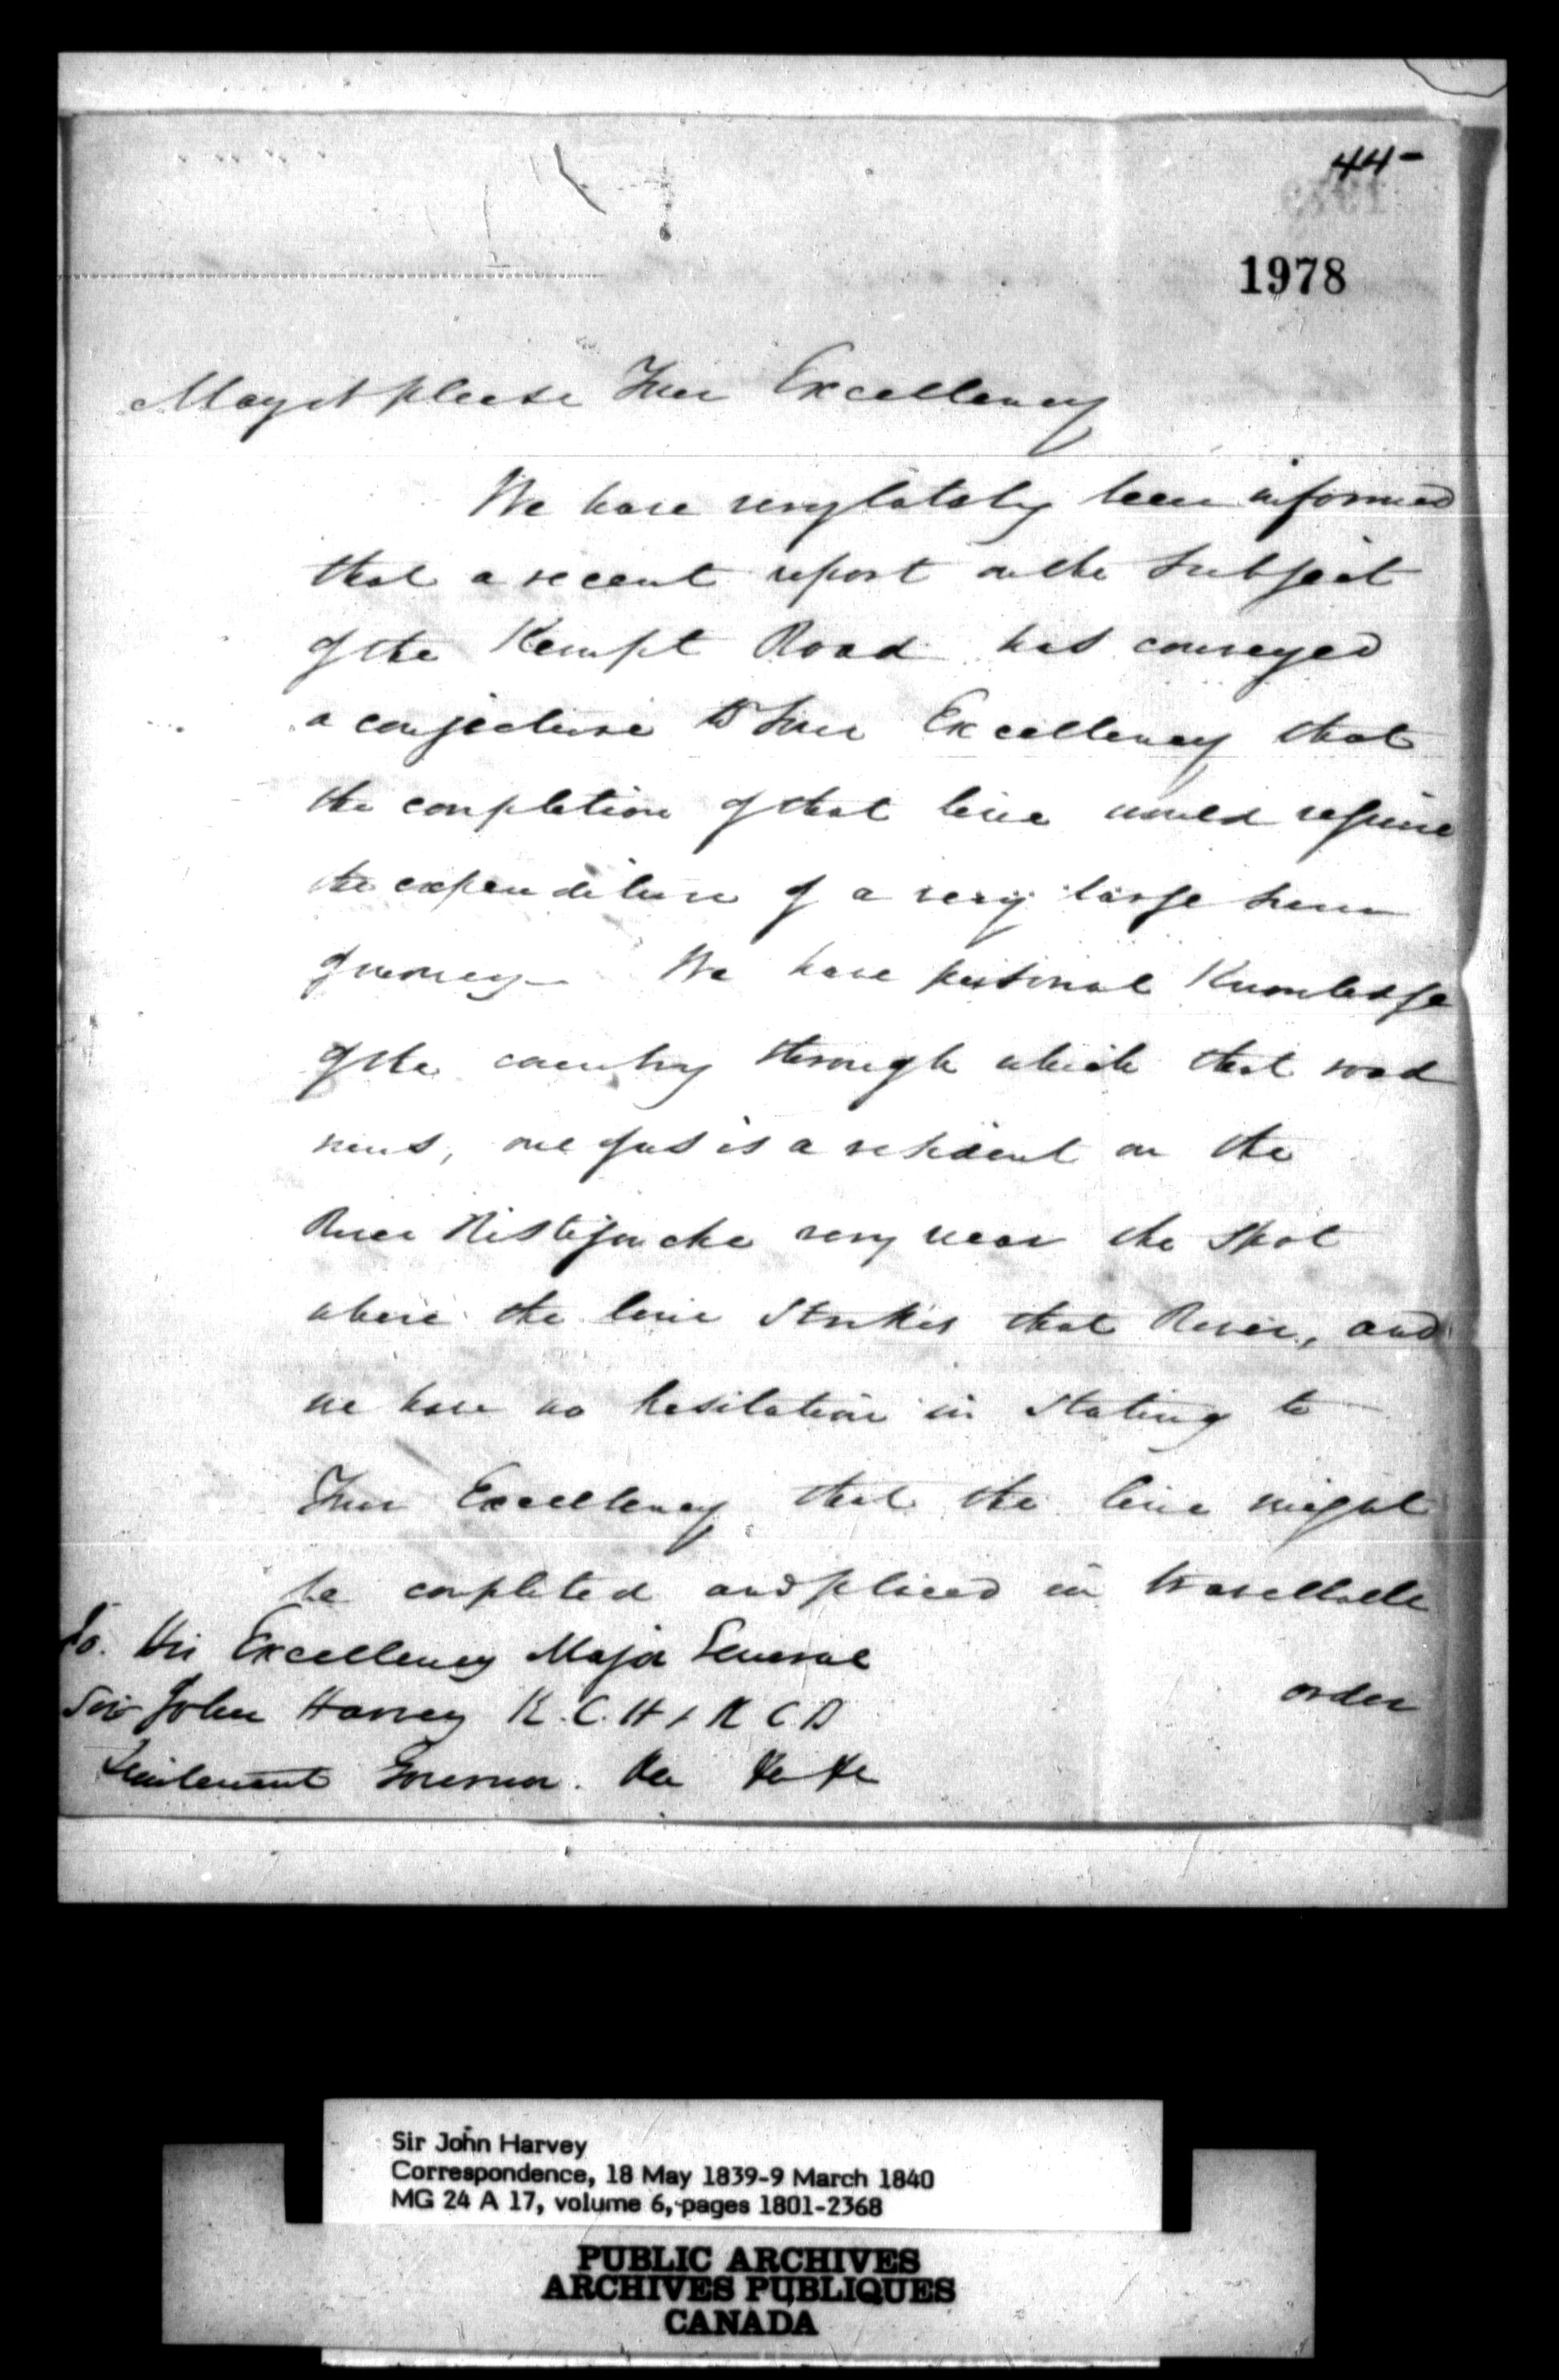 44-
1978
May it please Your Excellency
We have very lately been informed
that a recent report on the Subject
of the Kempt Road has conveyed
a conjecture to Your Excellency that
the completion of that line would require
the expenditure of a very large sum
of money— We have personal Knowledge
of the country through which that road
runs, one of us is a resident on the
River Ristigouche very near the Spot
where the line Strikes that River, and
we have no hesitation in Stating to
Your Excellency that the line might
be completed and placed in travellable
order
To. His Excellency Major General
Sir John Harvey K.C.H & K C B
Lieutenant Governor.
Sir John Harvey
Correspondence, 18 May 1839-9 March 1840
MG 24 A 17, volume 6, pages 1801-2368
PUBLIC ARCHIVES
ARCHIVES PUBLIQUES
CANADA